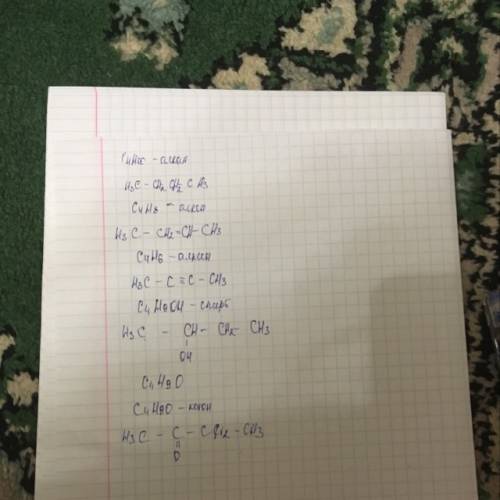 C4H10 - алкан
H3C - CH2 CH2 CH3
C4H8 - алкен
H3C - CH2=CH-CH3
C4H6 - алкин
H3C - C ≡ C - CH3
C4H9OH - спирт
H3C - CH - CH2 CH3
OH
C4H9O
C4H9O - кетон
H3C - C - CH2 - CH3
O